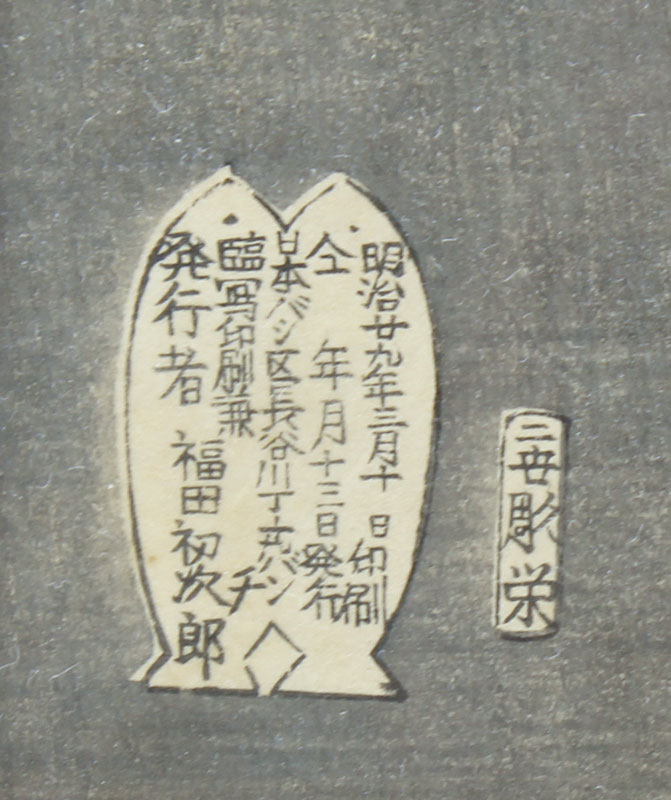 明治廿九年三月十 日印刷
仝 年 月十三日発行
日本バシ区長谷川丁十九バンチ
臨写印刷兼
発行者 福田初次郎
二世彫栄